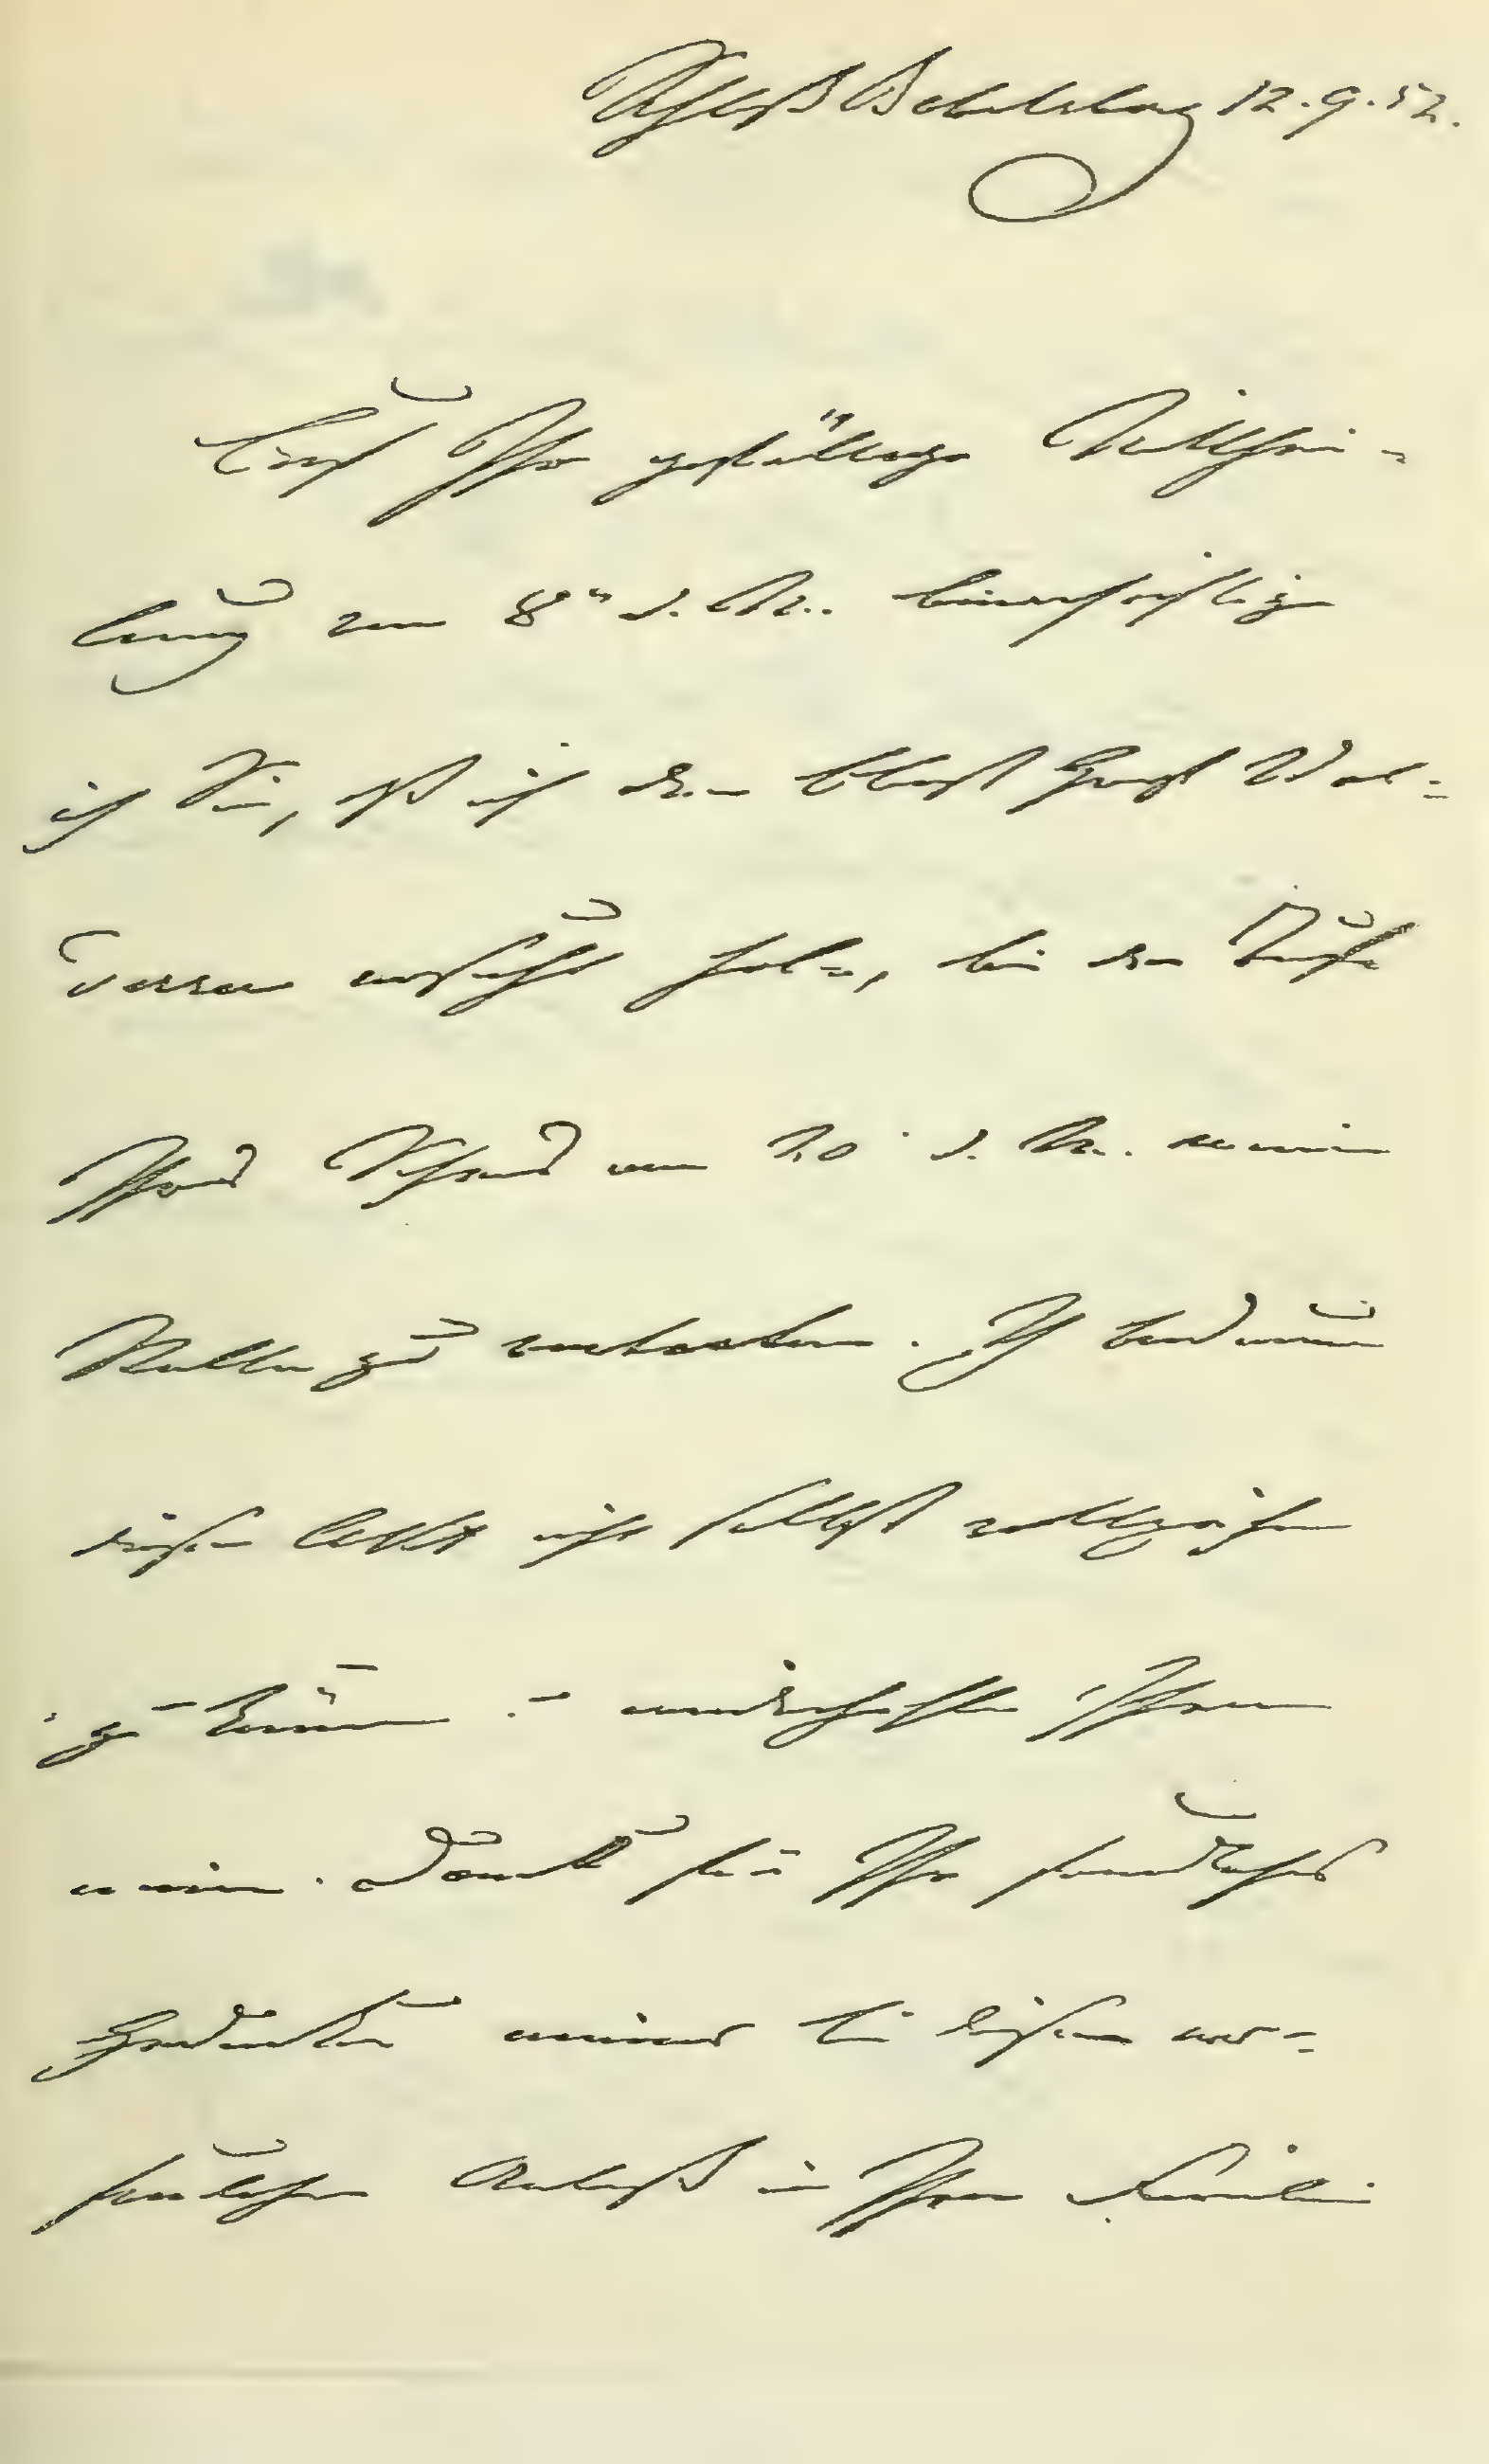 Schloß Babelsberg 12.9.52.
Auf Ihre gefällige Mitthei-
lung vom 8" d. M. benachrichtige
ich Sie, daß ich den Obrist Graf Wal-
dersee ersucht habe, bei der Taufe
Ihres Sohnes am 20' d. M. meine
Stelle zu vertreten. Ich bedaure
diesen Act nicht selbst vollziehen
zu können u.
meinen Dank für Ihr freundliches
Gedenken meiner bei diesem er-
freulichen Anlaß in Ihrer Familie